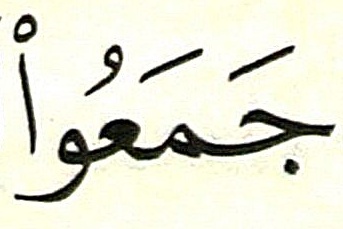 جَمَعُوا۟